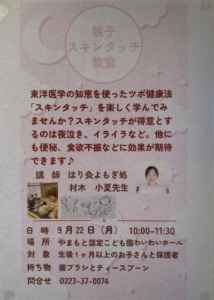 親子
スキンタッチ
教室
東洋医学の知恵を使ったツボ健康法
「スキンタッチ」を楽しく学んでみ
ませんか?スキンタッチが得意とす
るのは夜泣き、イライラなど。他に
も便秘、食欲不振などに効果が期待
できます♪
講師 はり灸よもぎ処
村木 小夏先生
日時 9月22日(月) 10:00~11:30
場所 やまもと認定こども園わいわいホール
対象 生後1ヶ月以上のお子さんと保護者
持ち物 歯ブラシとティースプーン
問合せ 0223-37-0074